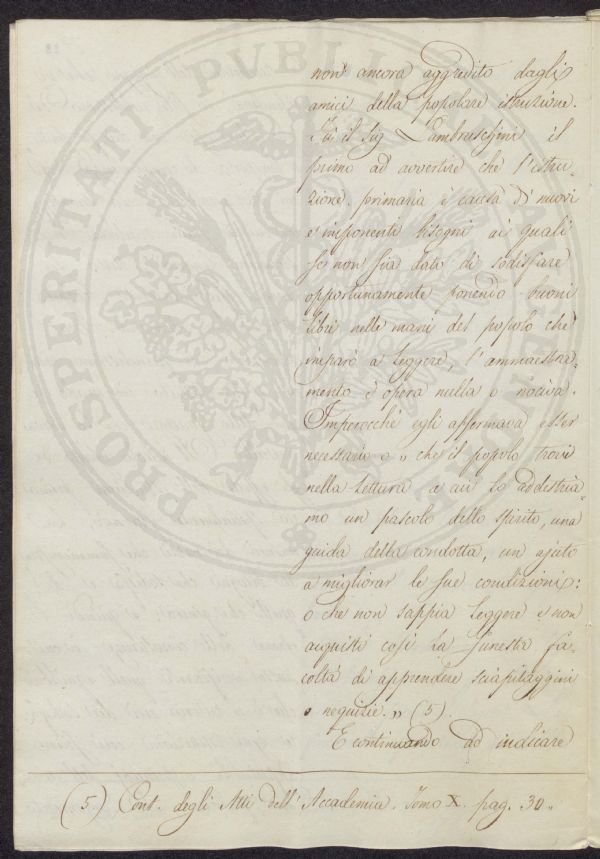 non ancora aggredito dagli
amici della popolare istruzione.
Fù il Sig Lambruschini il
primo ad avvertire che l'istru-
zione primaria è causa di nuovi
e imponenti bisogni ai quali
se non sia dato di sodisfare
opportunamente ponendo buoni
libri nelle mani del popolo che
imparò a leggere, l'ammaestra-
mento è opera nulla o nociva.
Imperocchè egli affermava esser
necessario o „ che il popolo trovi
nella lettura a cui lo addestria-
mo un pascolo dello spirito, una
guida della condotta, un ajuto
a migliorar le sue condizioni:
o che non sappia leggere e non
acquisti così la funesta fa-
coltà di apprendere sciapitaggini
o nequizie. „ (5).
E continuando ad indicare
(5) Cont. degli Atti dell'Accademia. Tomo X. pag. 30.
PROSPERITATI PVBLICAE AVGENDAE